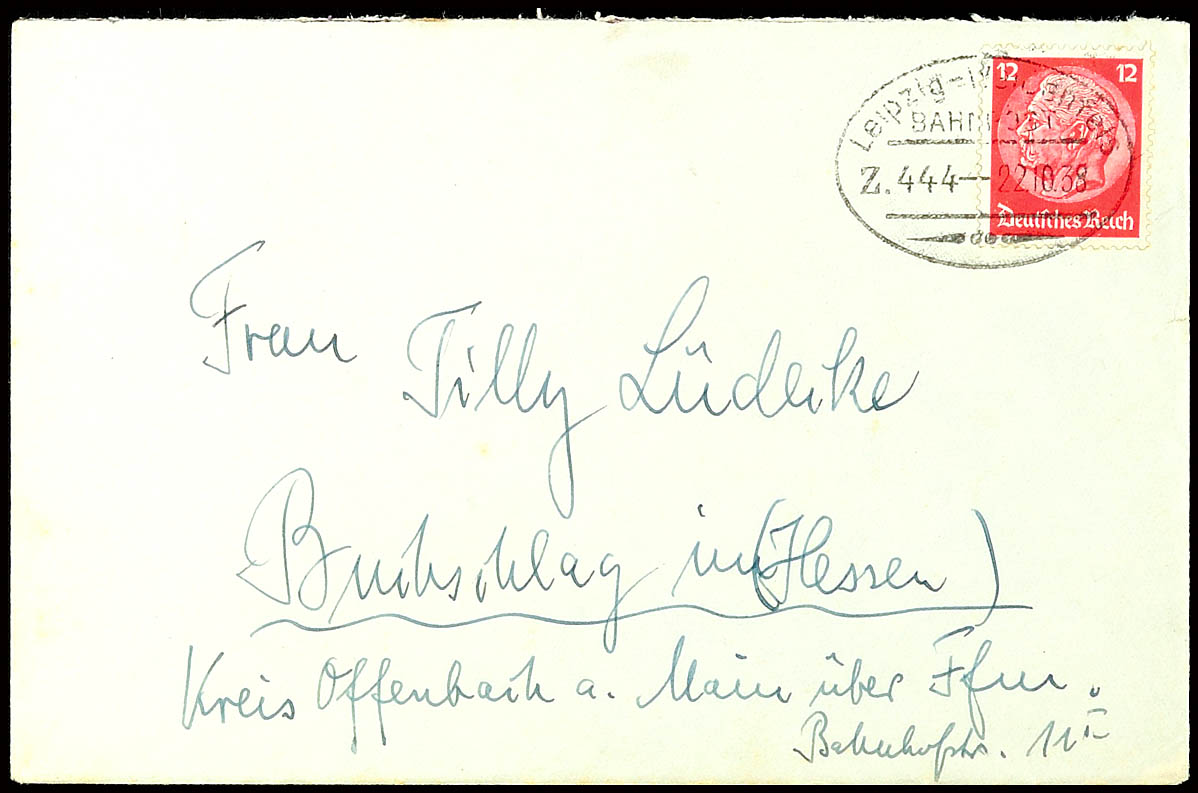 12 12
Leipzig–Weißenfels
BAHNPOST
Z. 444 — 22.10.38
Deutsches Reich
Frau Tilly Lüdecke
Buchschlag in (Hessen)
Kreis Offenbach a. Main über Ffm.
Bahnhofstr. 11 II